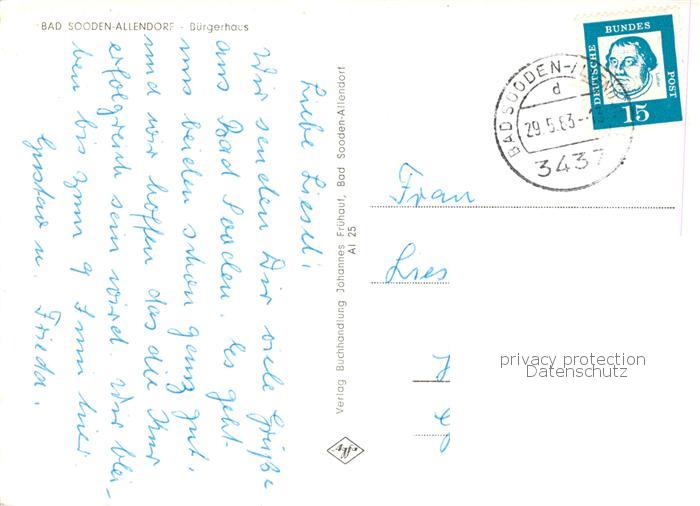 BAD SOODEN-ALLENDORF - Bürgerhaus
Liebe Liesel!
Wir senden Dir viele Grüße
aus Bad Sooden. Es geht
uns beiden schon ganz gut,
und wir hoffen das die Kur
erfolgreich sein wird. Wir blei-
ben bis zum 9 Juni hier.
Gustav u. Frieda.
Verlag Buchhandlung Johannes Frühauf, Bad Sooden-Allendorf
Al 25
DEUTSCHE BUNDES POST
15
BAD SOODEN-
d
29.5.63.-
3437
Frau
Lies
privacy protection
Datenschutz